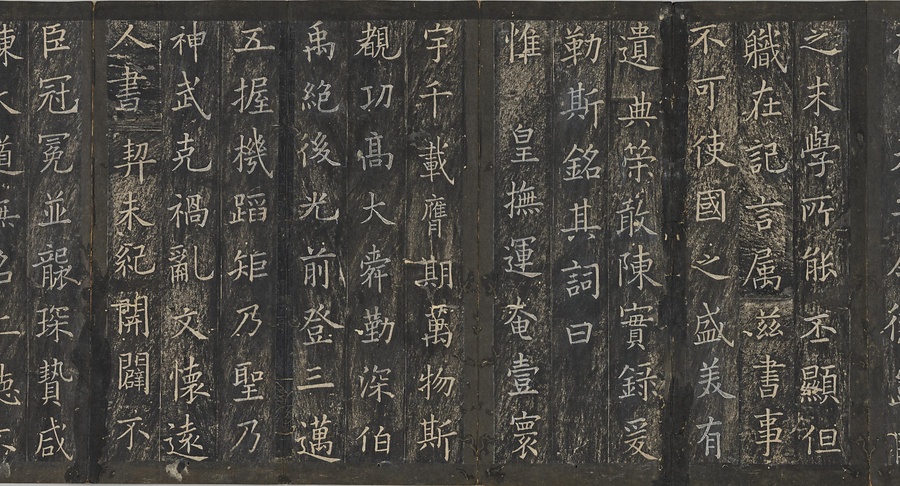 之末學所能丕顯但
職在記言属茲書事
不可使國之盛美有
遺典榮敢陳實録爰
勒斯銘其詞曰
惟 皇撫運奄壹寰
宇千載膺期萬物斯
覩功高大舜勤深伯
禹絶後光前登三邁
五握機蹈矩乃聖乃
神武克禍亂文懷遠
人書契未紀開闢不
臣冠冕並襲琛贄咸